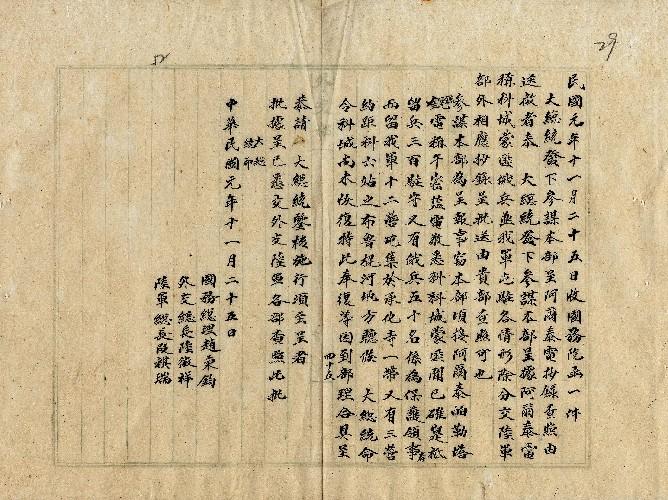 民國元年十一月二十五日收國務院函一件
大總統發下參謀本部呈阿爾泰電抄錄查照由
逕啟者奉 大總統發下參謀本部呈據阿爾泰電
稱科城蒙匪俄兵並我軍屯駐各情形除分交陸軍
部外相應抄錄呈批送由貴部查照可也
參謀本部為呈報事竊本部頃接阿爾泰帕勒塔
電稱午密藍電敬悉科城蒙匪聞已確是祗
留兵三百駐守又有俄兵五十名係為保護領事
而留我軍十二營現集於承化寺一帶又有三營
約距科六站之布魯提河地方聽候 大總統命
令科城尚未恢復特此奉復等因到部理合具呈
恭請 大總統鑒核施行須至呈者
批據呈已悉交外交陸軍各部查照此批
大總
統印
中華民國元年十一月二十五日
國務總理趙秉鈞
外交總長陸徵祥
陸軍總長段祺瑞
29
52